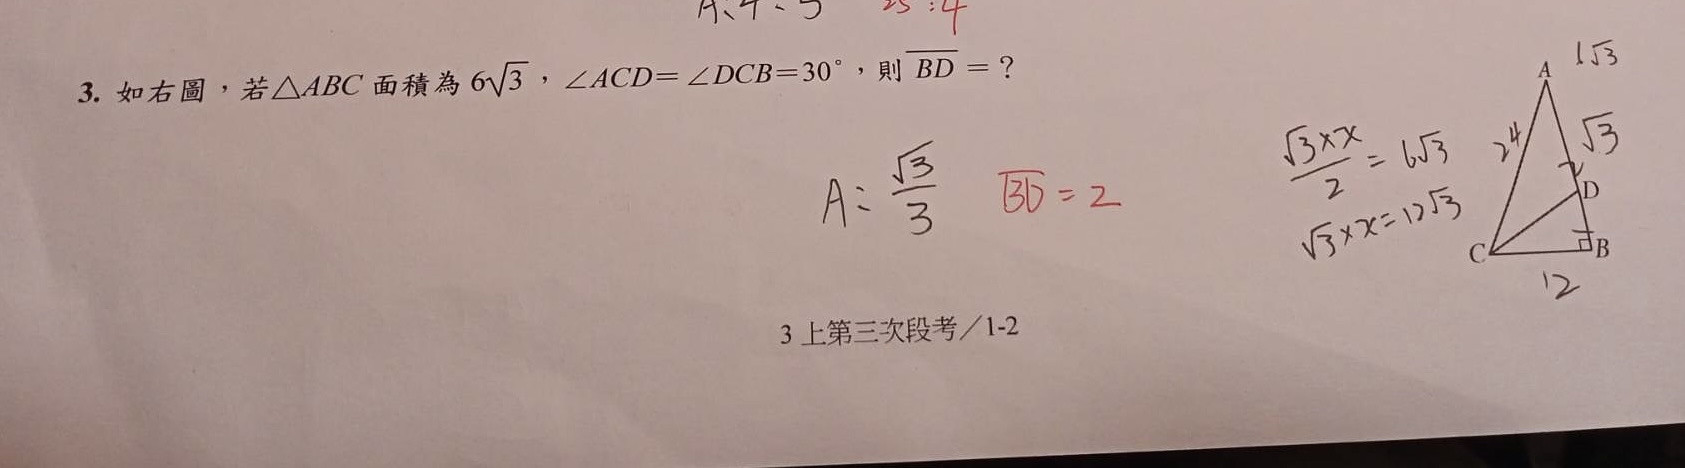 25 : 4
3. 如右圖，若△ABC 面積為 6√3，∠ACD=∠DCB=30°，則 BD = ?
A: √3/3
BD = 2
√3×x/2 = 6√3
√3×x=12√3
1√3
A
24
√3
D
C
B
12
3 上第三次段考／1-2